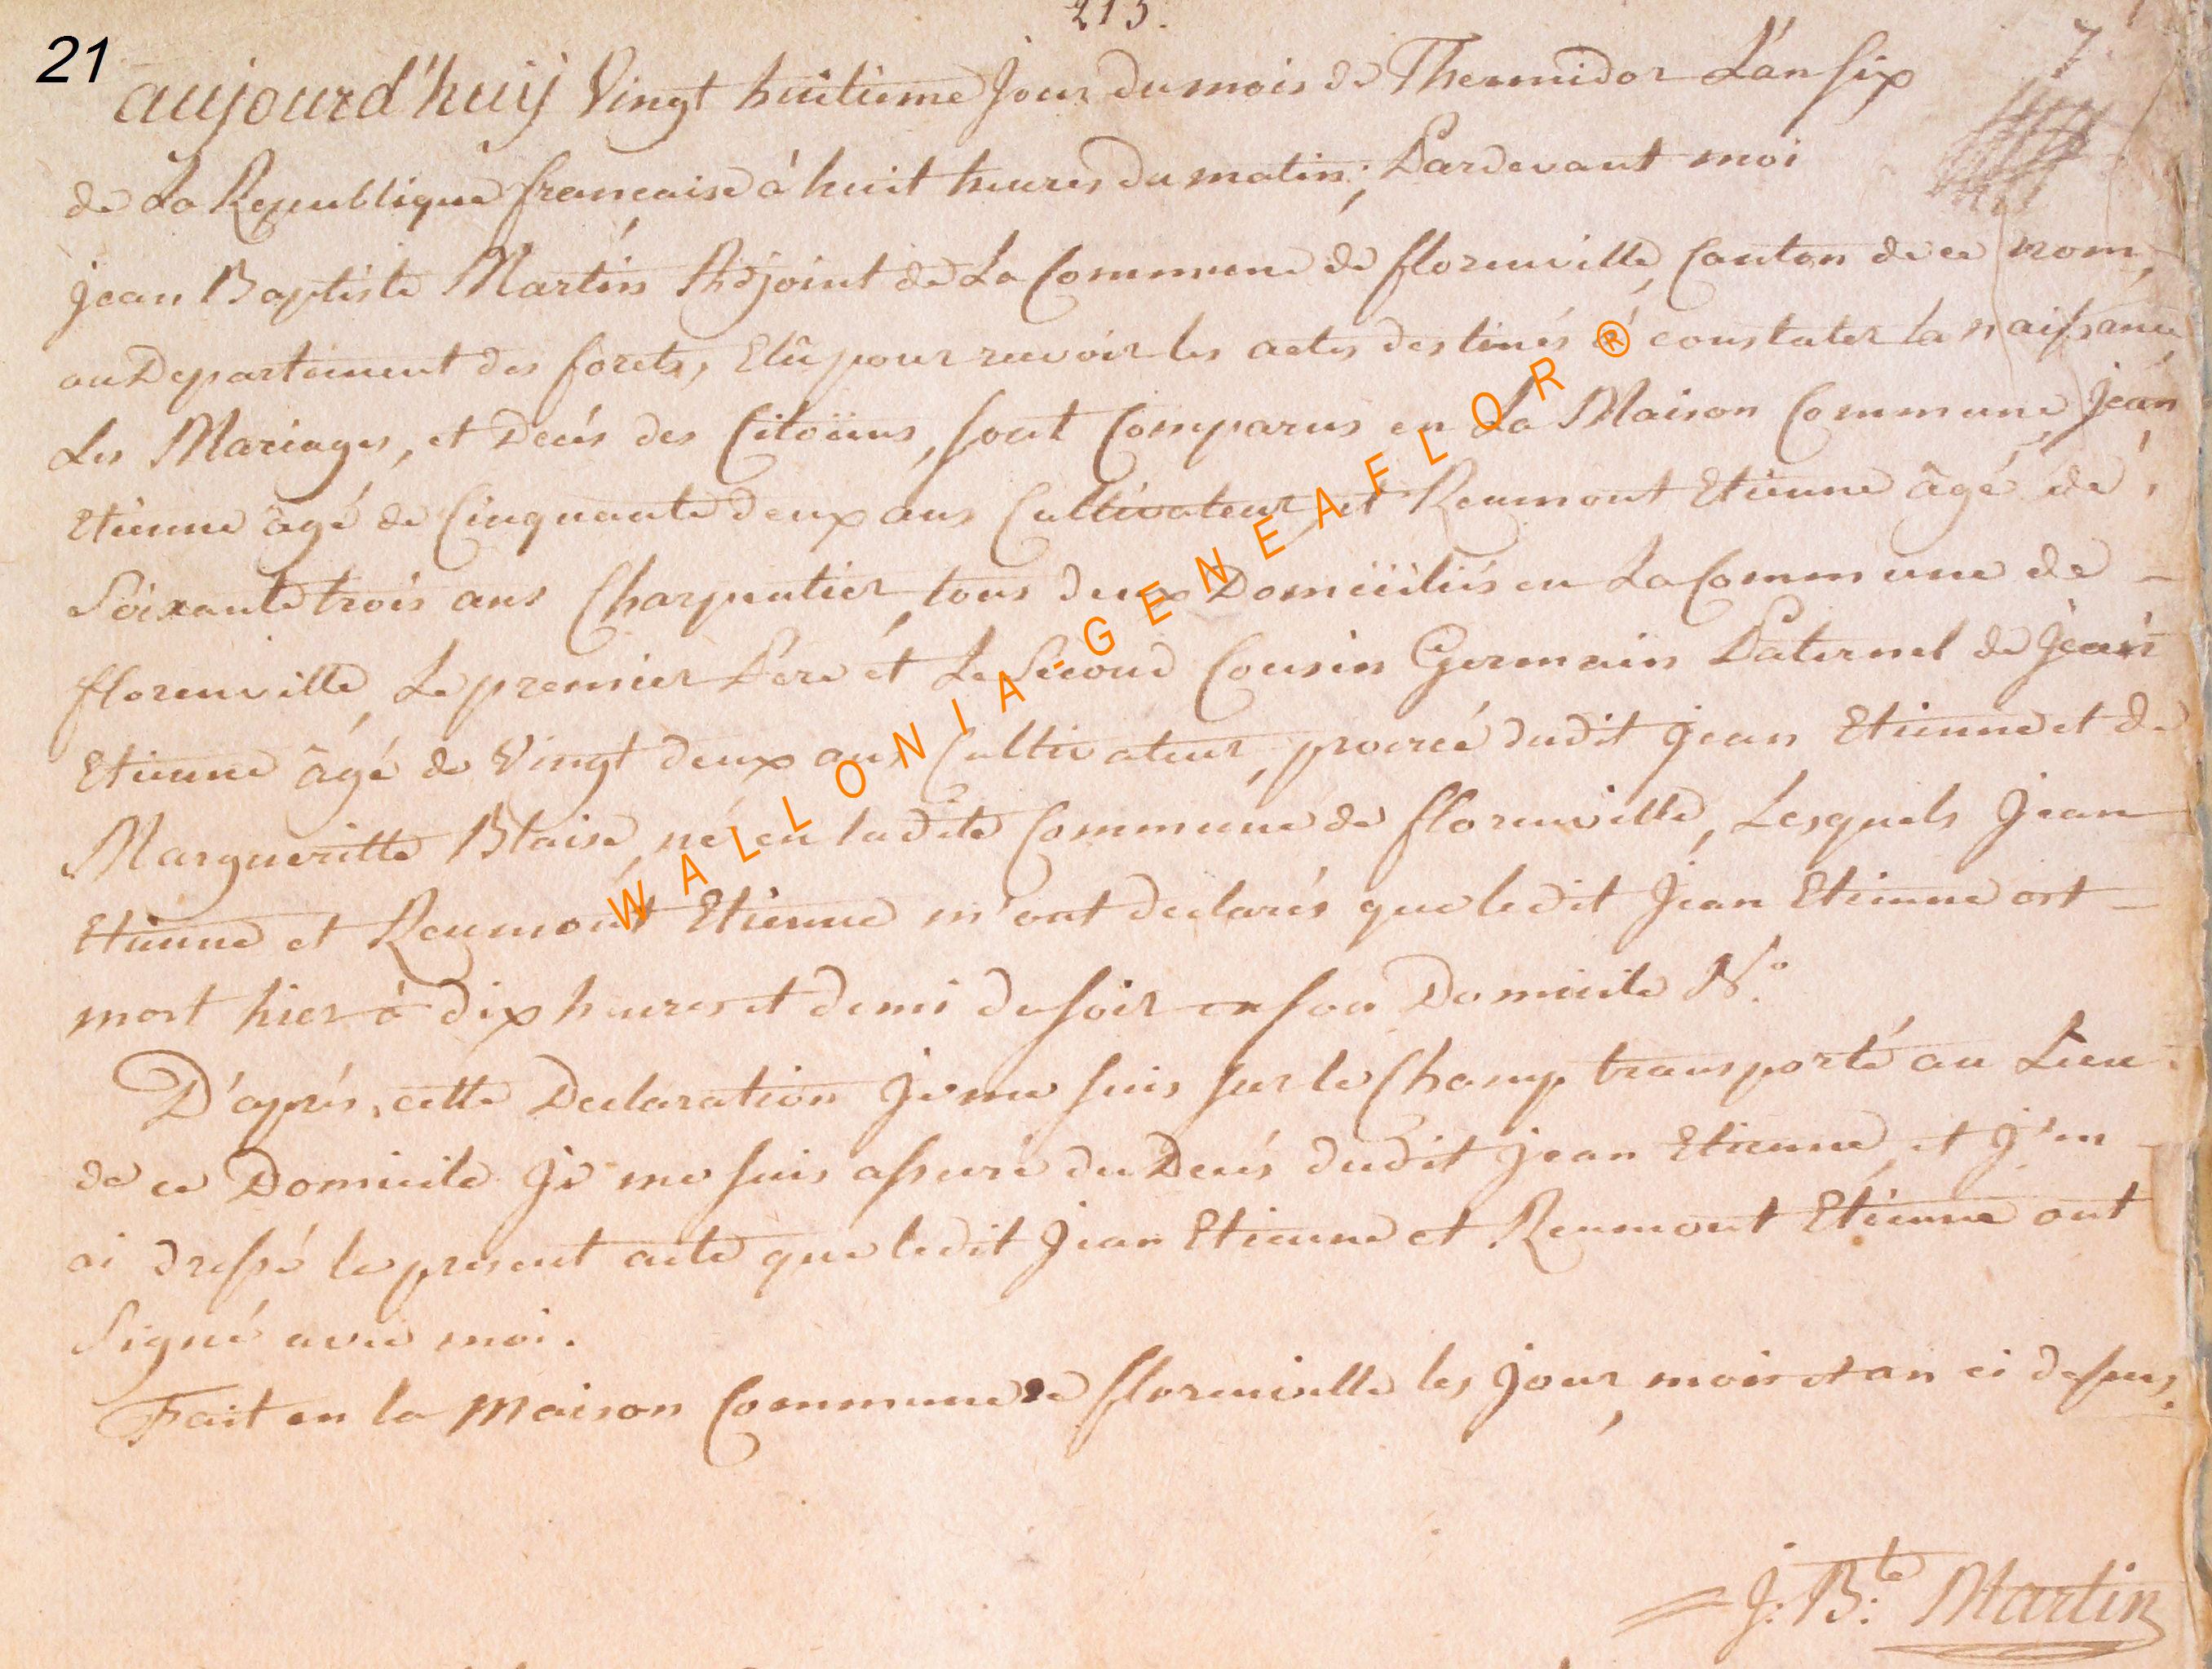 213.
7
21
aujourd'huÿ Vingt huitieme Jour du mois de Thermidor L'an six
de La Republique francaise à huit heures du matin; Pardevant moi
Jean Baptiste Martin Adjoint de La Commune de florenville, Canton de ce nom,
au Departement des forets, Elû pour recevoir les actes destinés à constater la naissance
Les Mariages, et Decés des Citoïens, sont Comparus en La Maison Commune, Jean
Etienne âgé de Cinquante deux ans Cultivateur, et Reumont Etienne âgé de
Soixante trois ans Charpentier, tous deux Domiciliés en La Commune de -
florenville, Le premier Pére et Le Second Cousin Germain Paternel de Jean
Etienne âgé de Vingt deux ans Cultivateur, procréé dudit Jean Etienne et de
Margueritte Blaise, né en ladite Commune de florenville, Lesquels Jean
Etienne et Reumont Etienne m'ont declarés que ledit Jean Etienne est -
mort hier à dix heures et demi du soir en son Domicile N.º
D'aprés, cette Declaration Je me suis sur le Champ transporté au Lieu
de ce Domicile Je me suis assuré du Decés dudit Jean Etienne, et J'en -
ai dressé le present acte que ledit Jean Etienne et Reumont Etienne ont
Signé avec moi.
Fait en la Maison Commune de florenville les Jour, mois et an ci dessus.
J: B:te Martin
WALLONIA-GENEAFLOR ®